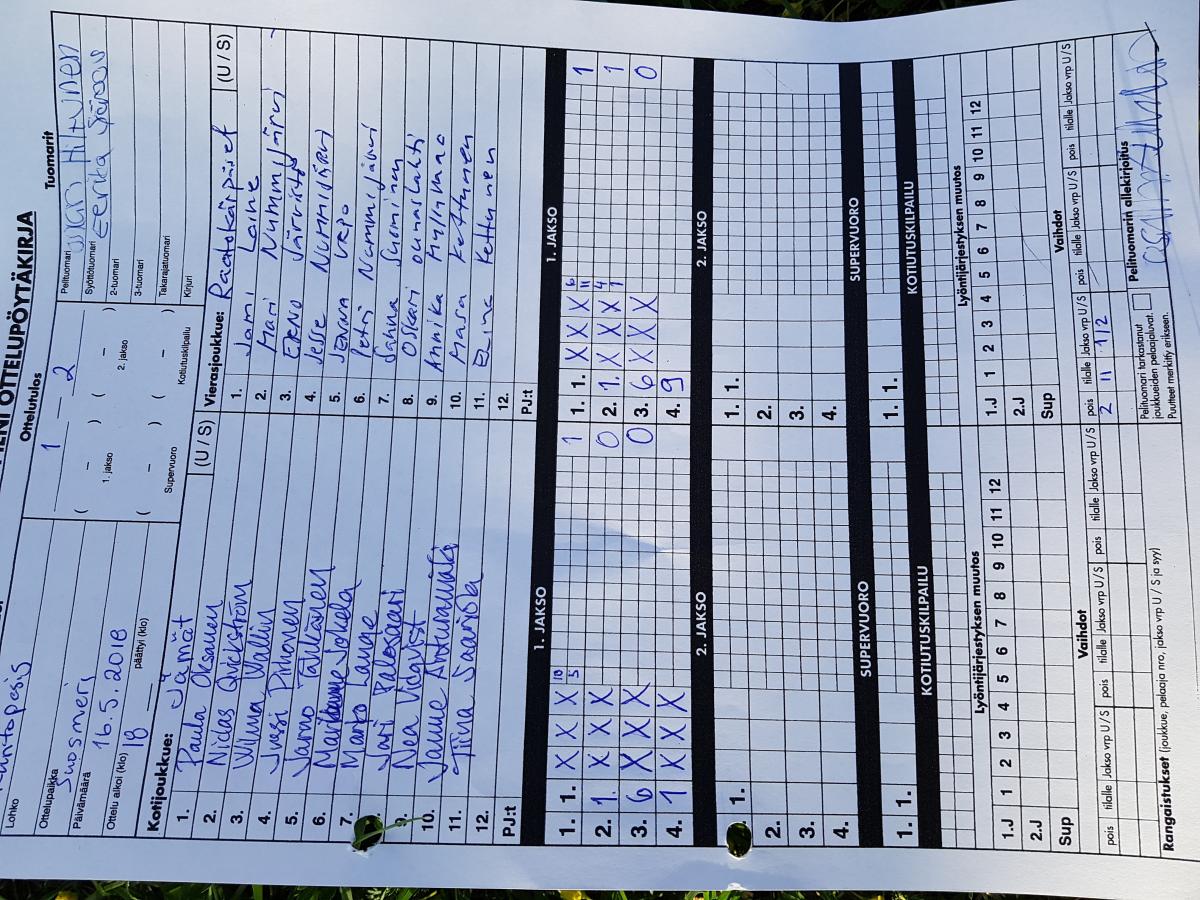 PIENI OTTELUPÖYTÄKIRJA
Lohko
Ottelupaikka
Suosmeri
Päivämäärä
16.5.2018
Ottelu alkoi (klo) 18 päättyi (klo)
Ottelutulos
1 – 2
( – ) ( – )
1. jakso 2. jakso
( – ) ( – )
Supervuoro Kotiutuskilpailu
Tuomarit
Pelituomari
Hiltunen
Syöttötuomari
Eerika
2-tuomari
3-tuomari
Takarajatuomari
Kirjuri
Kotijoukkue: Jämät (U / S)
1. Paula Oksanen
2. Niclas Qvickström
3. Wilma Wallin
4. Jussi Pihonen
5. Jarno
6. Jokela
7. Marko Lampe
Jari Palosaari
9. Nea
10. Janne
11. Tiina Saariola
12.
PJ:t
Vierasjoukkue: Raatokärpäset (U / S)
1. Jami Laine
2. Mari Nummijärvi
3. Eero Järvistö
4. Jesse Nummijärvi
5. Jenna Vepo
6. Petri Nummijärvi
7. Sanna Suominen
8. Oskari Ounaslahti
9. Annika Myllymaa
10. Masa Kettunen
11. Elina Kettunen
12.
PJ:t
1. JAKSO
1. 1. X X X 10 5 1
2. 1. X X X 0
3. 6 X X X 0
4. 1 X X X
2. JAKSO
1. 1.
2.
3.
4.
SUPERVUORO
1. 1.
KOTIUTUSKILPAILU
1. JAKSO
1. 1. X X X 6 11 1
2. 1. X X X 4 1 1
3. 6 X X X 0
4. 9
2. JAKSO
1. 1.
2.
3.
4.
SUPERVUORO
1. 1.
KOTIUTUSKILPAILU
Lyöntijärjestyksen muutos
1.J 1 2 3 4 5 6 7 8 9 10 11 12
2.J
Sup
Vaihdot
pois tilalle Jakso vrp U/S pois tilalle Jakso vrp U/S pois tilalle Jakso vrp U/S pois tilalle Jakso vrp U/S
Lyöntijärjestyksen muutos
1.J 1 2 3 4 5 6 7 8 9 10 11 12
2.J
Sup
Vaihdot
pois tilalle Jakso vrp U/S pois tilalle Jakso vrp U/S pois tilalle Jakso vrp U/S
2 11 1/2
Rangaistukset (joukkue, pelaaja nro, jakso vrp U / S ja syy)
Pelituomari tarkastanut
joukkueiden pelaajaluvat.
Puutteet merkitty erikseen.
Pelituomarin allekirjoitus